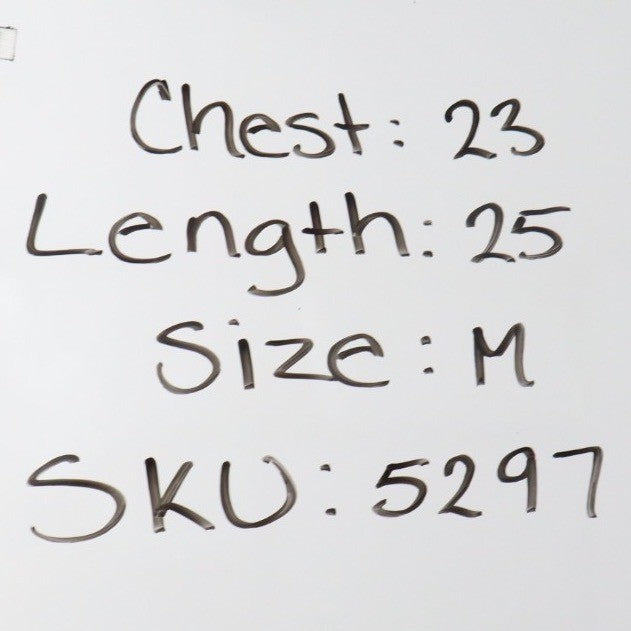 Chest: 23
Length: 25
Size: M
SKU: 5297